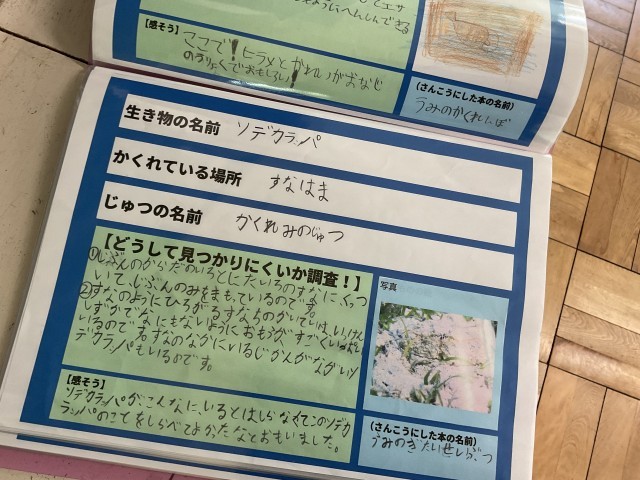 ようにへんしんできる
【感そう】
ここで!ヒラメとかれいがおなじ
のうりょくでおもしろい!
(さんこうにした本の名前)
うみのかくれんぼ
生き物の名前 ソデカラッパ
かくれている場所 すなはま
じゅつの名前 かくれみのじゅつ
【どうして見つかりにくいか調査!】
①じぶんのからだのいろとにたいろのすなにくっつ
いて、じぶんのみをまもっているのです。
②すなのようにひろがるすなちのかいていは、いっけん
しずかでなにもないようにおもうが、すごくいっぱい
いるのです。すなのなかにいるじかんがながいソ
デカラッパもいるのです。
写真
【感そう】
ソデカラッパがこんなに、いるとはしらなくてこのソデカ
ラッパのことをしらべてよかったなとおもいました。
(さんこうにした本の名前)
うみのぎたいせいぶつ